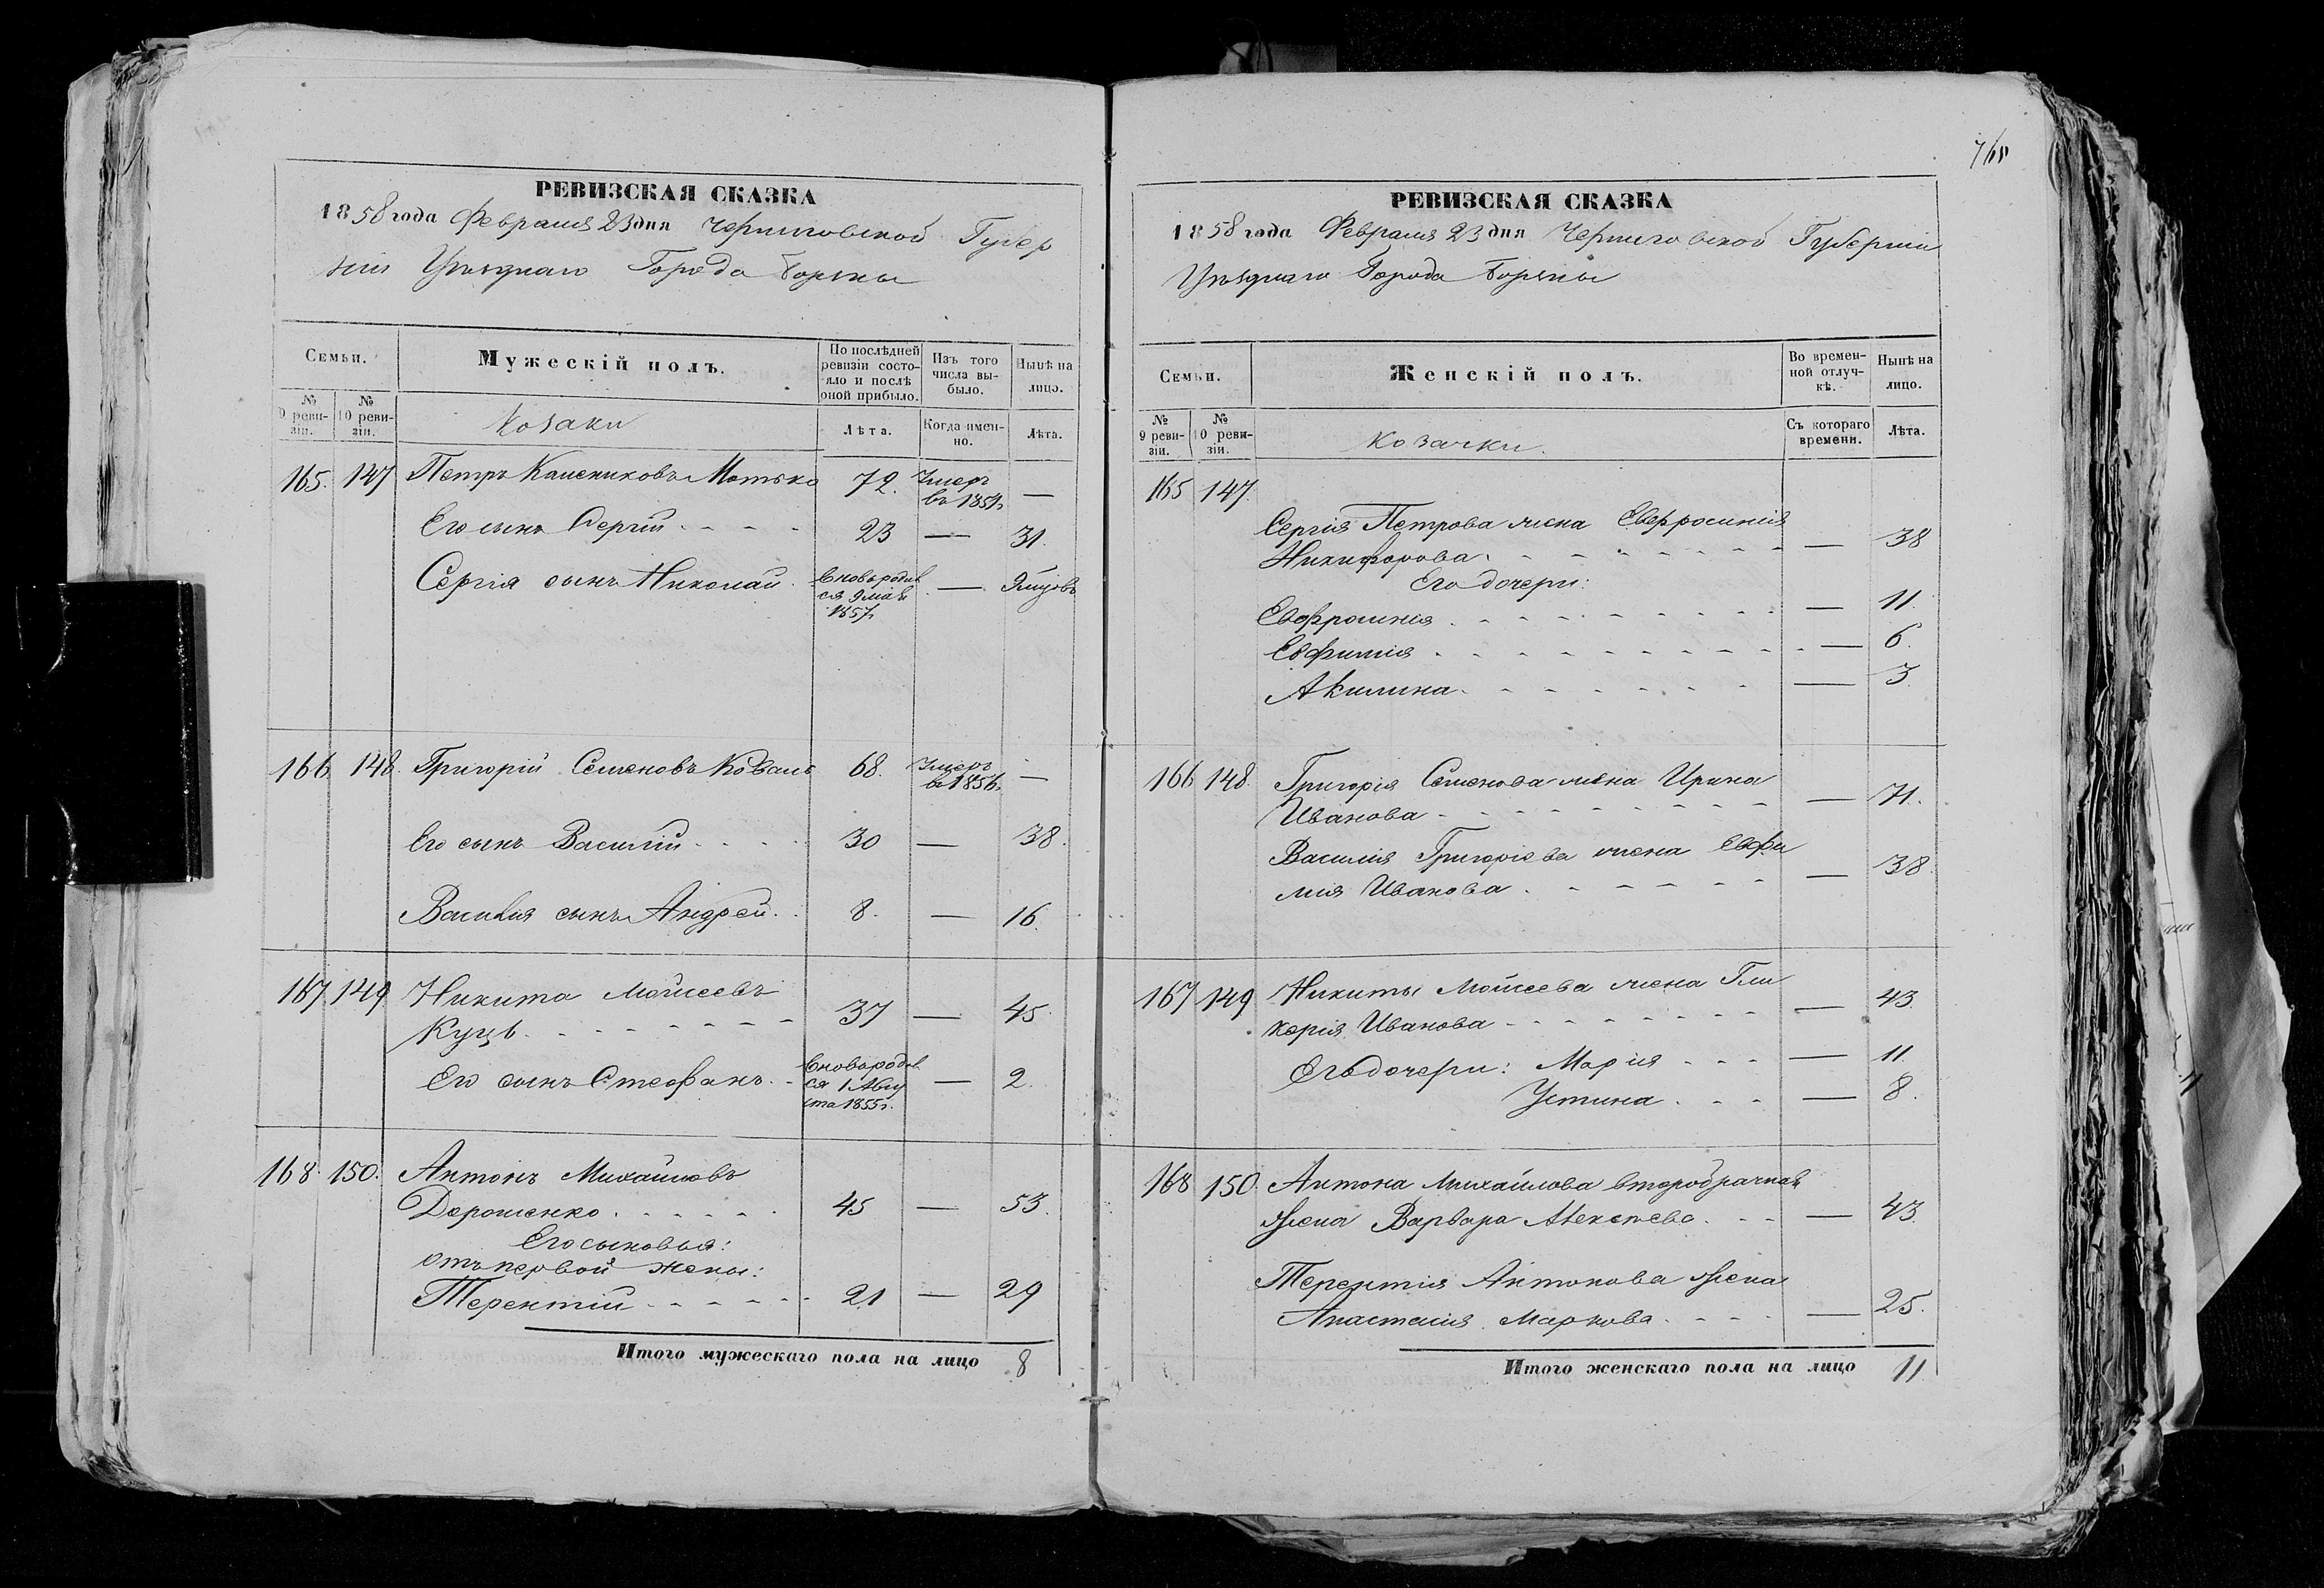 РЕВИЗСКАЯ СКАЗКА
1858 года Февраля 23 дня Черниговской Губер
ніи Уѣзднаго Города Борзны
Семьи.
Мужескій полъ.
По послѣдней ревизіи состояло и послѣ оной прибыло.
Изъ того числа выбыло.
Нынѣ на лицо.
№ 9 ревизіи.
№ 10 ревизіи.
Козаки
Лѣта.
Когда именно.
Лѣта.
165. 147 Петръ Мотько 72. Умеръ —
въ
Его сынъ Сергій 23 — 31.
Сергія сынъ Николай. вновь родив — 9 мцовъ
ся 9 мая
1857г.
166 148. Григорій Семеновъ Коваль 68. Умеръ —
въ 1856г.
Его сынъ Василій 30 — 38.
Василія сынъ Андрей. 8. — 16.
167 149 Никита Мойсеевъ
Куць 37 — 45.
Его сынъ Стефанъ. вновь родив — 2.
ся 1 Авгу
ста 1855г.
168. 150. Антонъ Михайловъ
Дорошенко 45 — 53.
Его сыновья:
отъ первой жены:
Терентій 21 — 29
Итого мужескаго пола на лицо 8
РЕВИЗСКАЯ СКАЗКА
1858 года Февраля 23 дня Черниговской Губерніи
Уѣзднаго Города Борзны
Семьи.
Женскій полъ.
Во временной отлучкѣ.
Нынѣ на лицо.
№ 9 ревизіи.
№ 10 ревизіи.
Козачки.
Съ котораго времени.
Лѣта.
165 147.
Сергія Петрова жена Евфросинія
Никифорова — 38
Его дочери:
Евфросинія — 11.
Евфимія — 6.
Акилина — 3.
166 148. Григорія Семенова жена Ирина
Иванова — 71.
Василія Григоріева жена Евфи
мія Иванова — 38.
167 149 Никиты Мойсеева жена Гли
керія Иванова — 43.
Его дочери: Марія — 11.
Устина — 8.
168 150. Антона Михайлова второбрачная
жена Варвара Алексѣева — 43.
Терентія Антонова жена
Анастасія Маркова — 25.
Итого женскаго пола на лицо 11